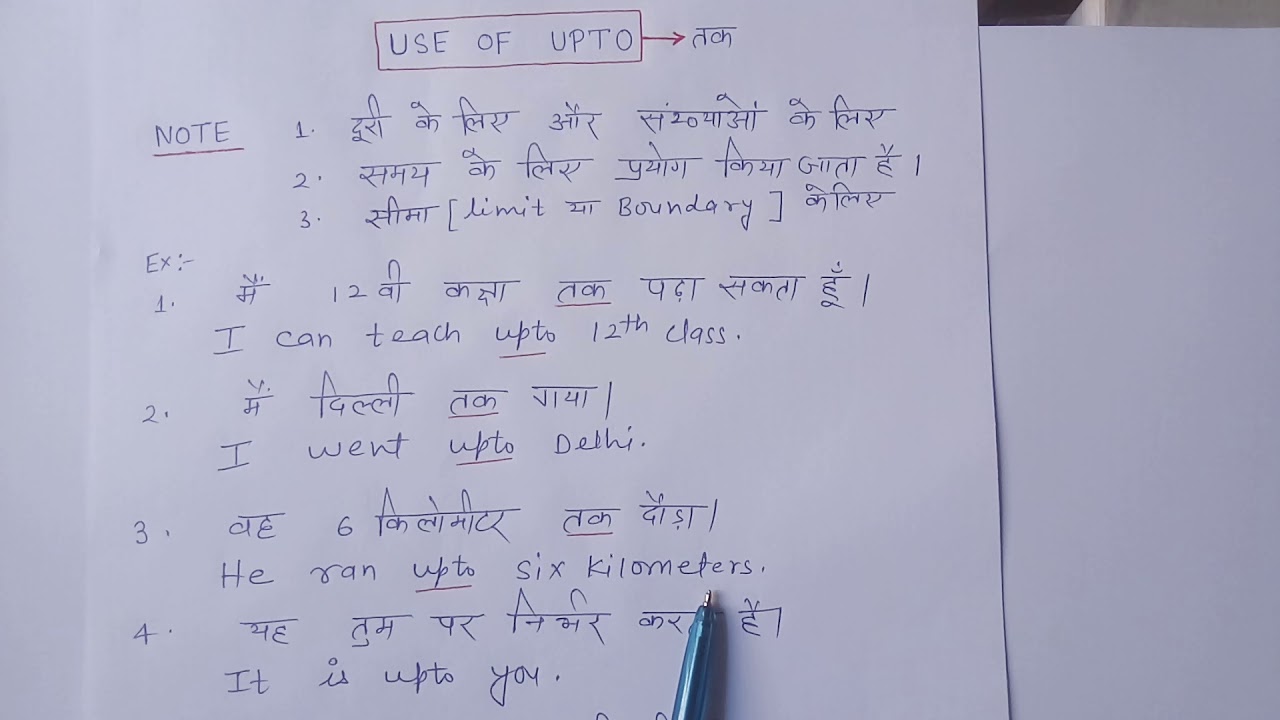 USE OF UPTO → तक
NOTE 1. दूरी के लिए और संख्याओं के लिए
2. समय के लिए प्रयोग किया जाता है।
3. सीमा [limit या Boundary] के लिए
Ex:-
1. मैं 12वी कक्षा तक पढ़ा सकता हूँ।
I can teach upto 12th class.
2. मैं दिल्ली तक गया।
I went upto Delhi.
3. वह 6 किलोमीटर तक दौड़ा।
He ran upto six kilometers.
4. यह तुम पर निर्भर करता है।
It is upto you.